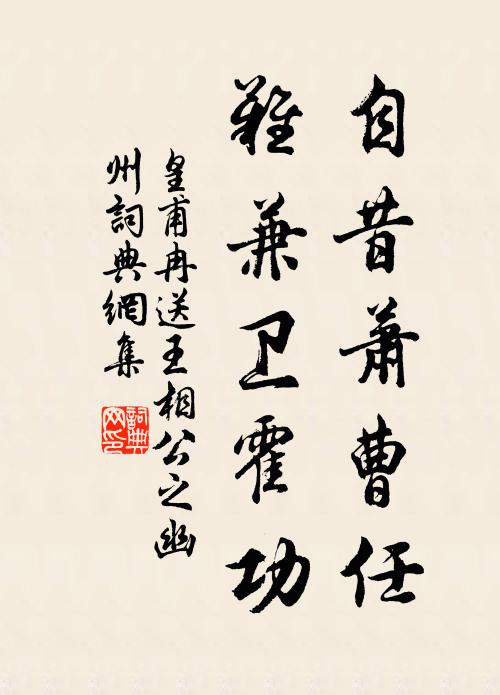 自昔蕭曹任
難兼卫霍功
皇甫冉送王相公之幽
州詞典網集
詞典
网印